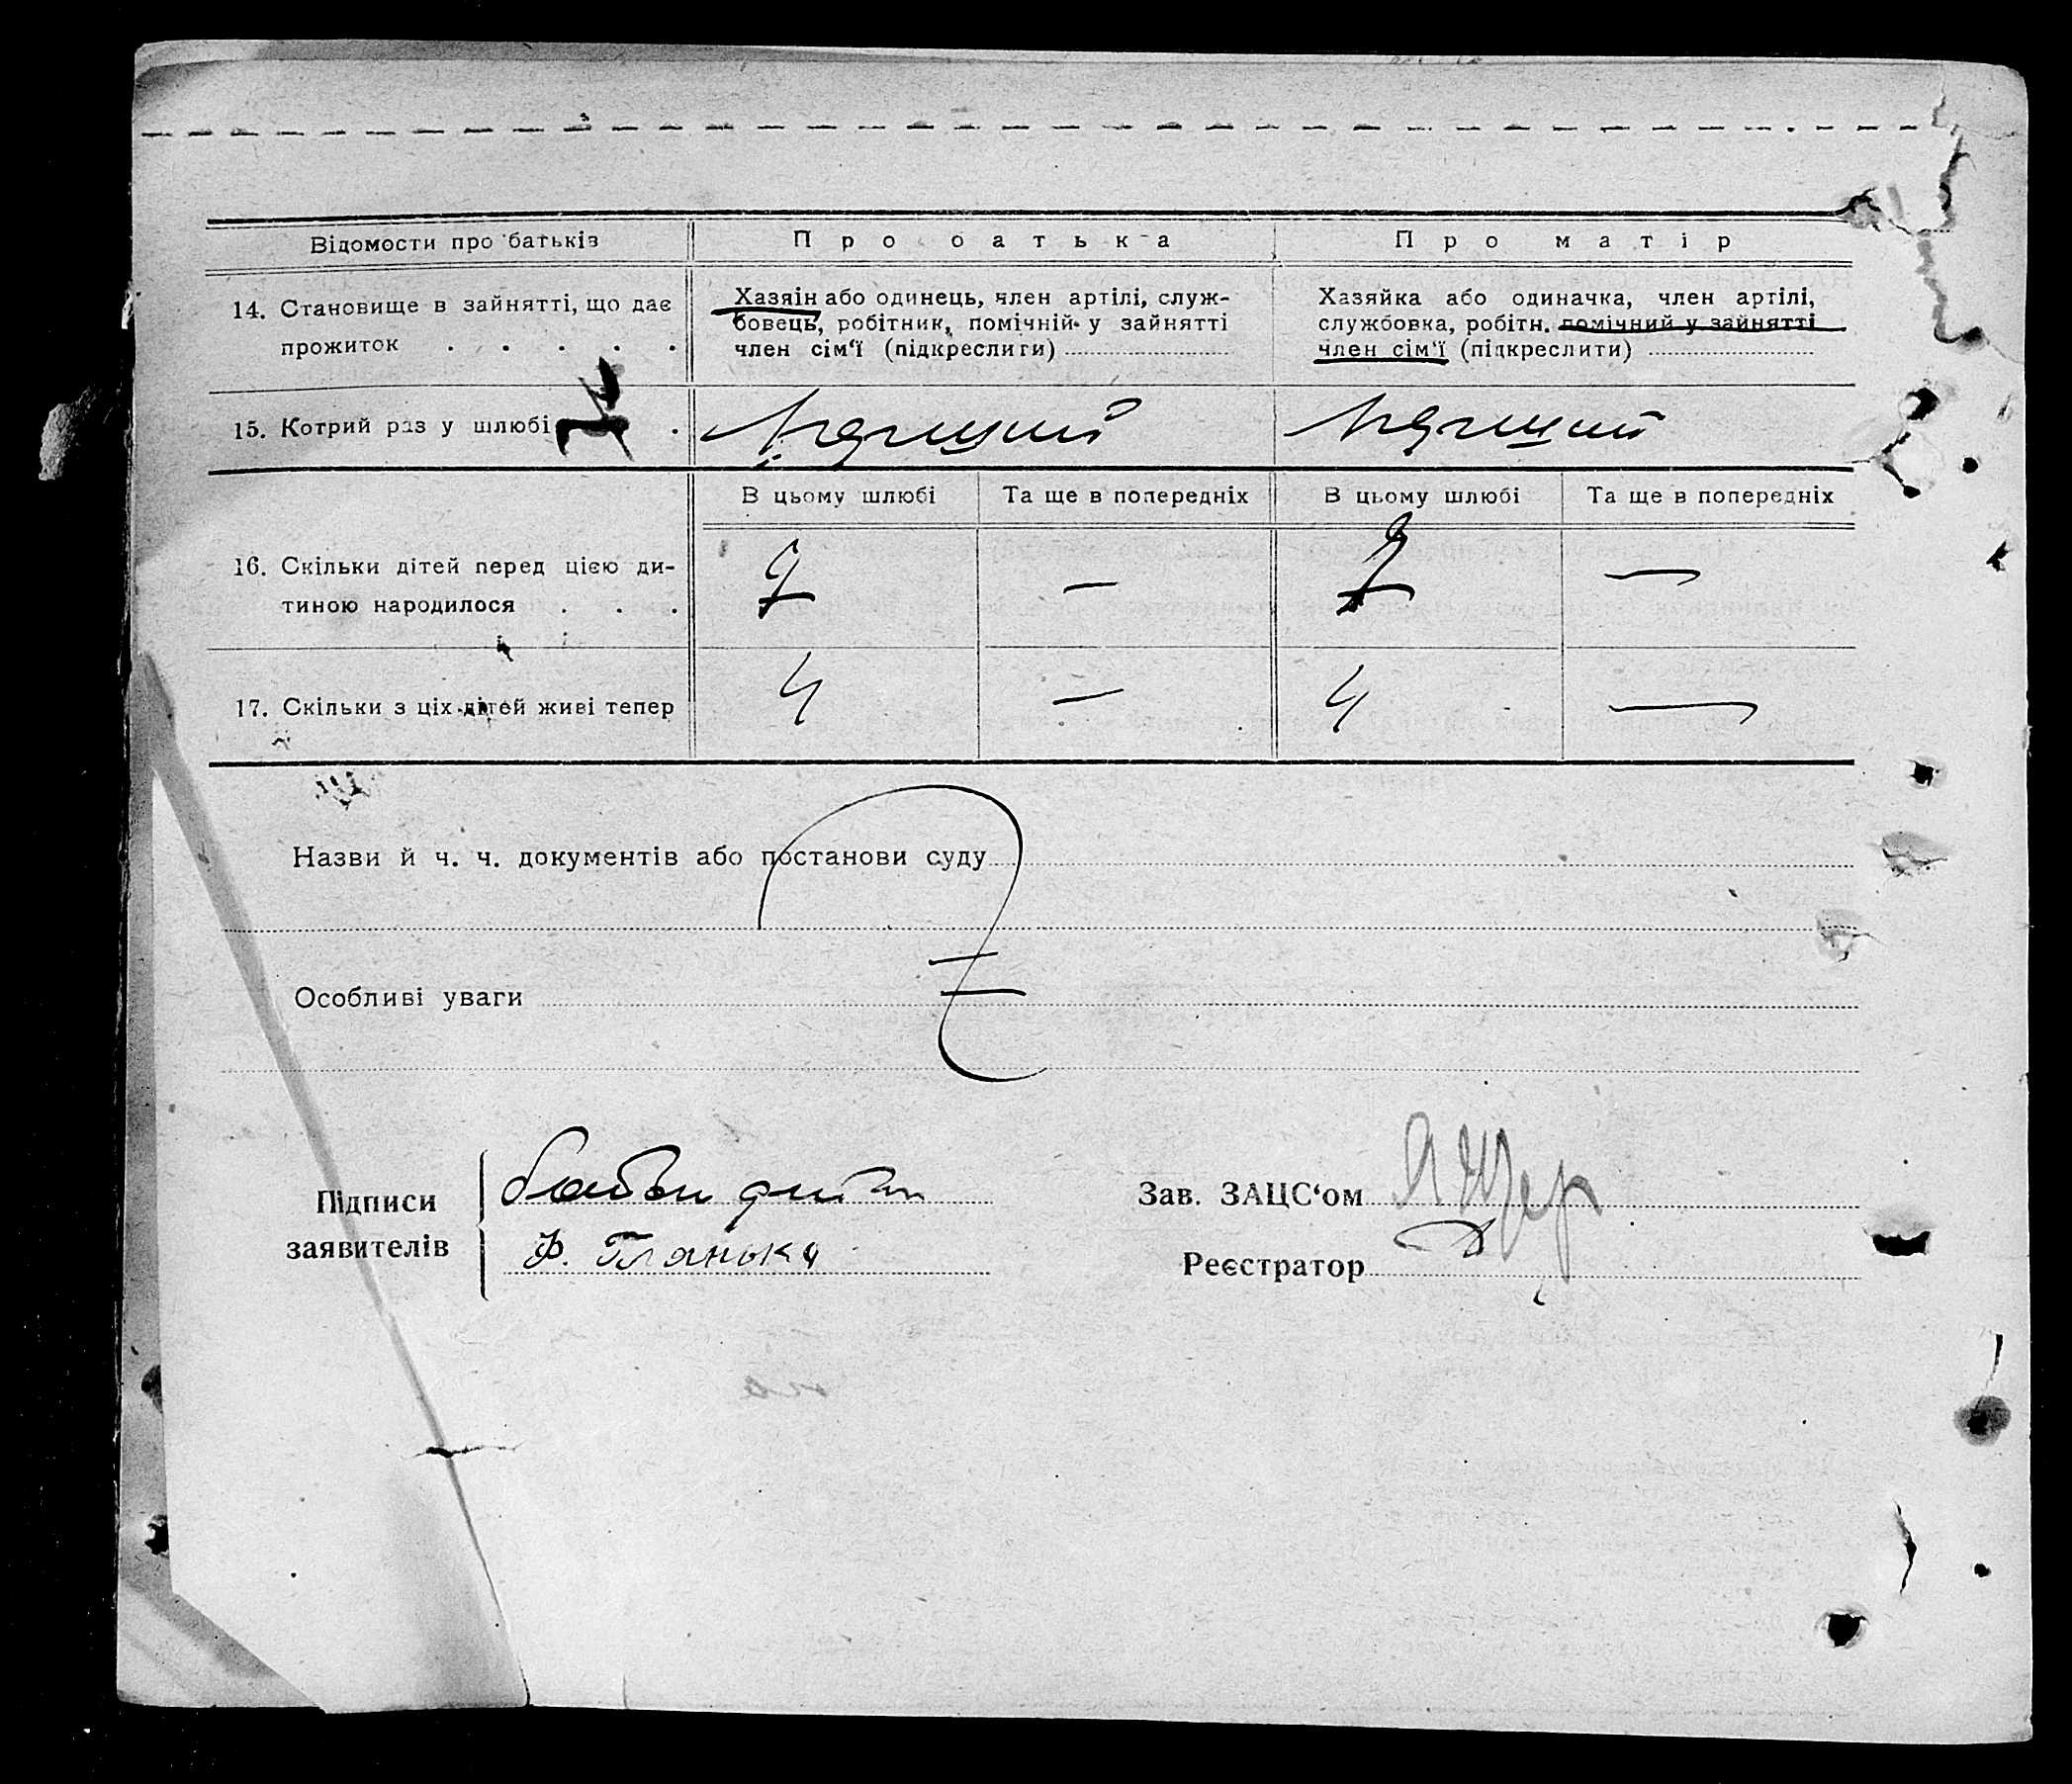 Відомости про батьків
Про батька
Про матір
14. Становище в зайнятті, що дає
прожиток . . . . .
Хазяїн або одинець, член артілі, служ-
бовець, робітник, помічний у зайнятті
член сім‘ї (підкреслити)
Хазяйка або одиначка, член артілі,
службовка, робітн. помічний у зайнятті
член сім‘ї (підкреслити)
15. Котрий раз у шлюбі .
Перший
Перший
В цьому шлюбі
Та ще в попередніх
В цьому шлюбі
Та ще в попередніх
16. Скільки дітей перед цією ди-
тиною народилося . . .
—
—
17. Скільки з ціх дітей живі тепер
4
—
4
—
Назви й ч. ч. документів або постанови суду
Особливі уваги
Підписи
заявителів
Ф. Глянька
Зав. ЗАЦС‘ом
Реєстратор